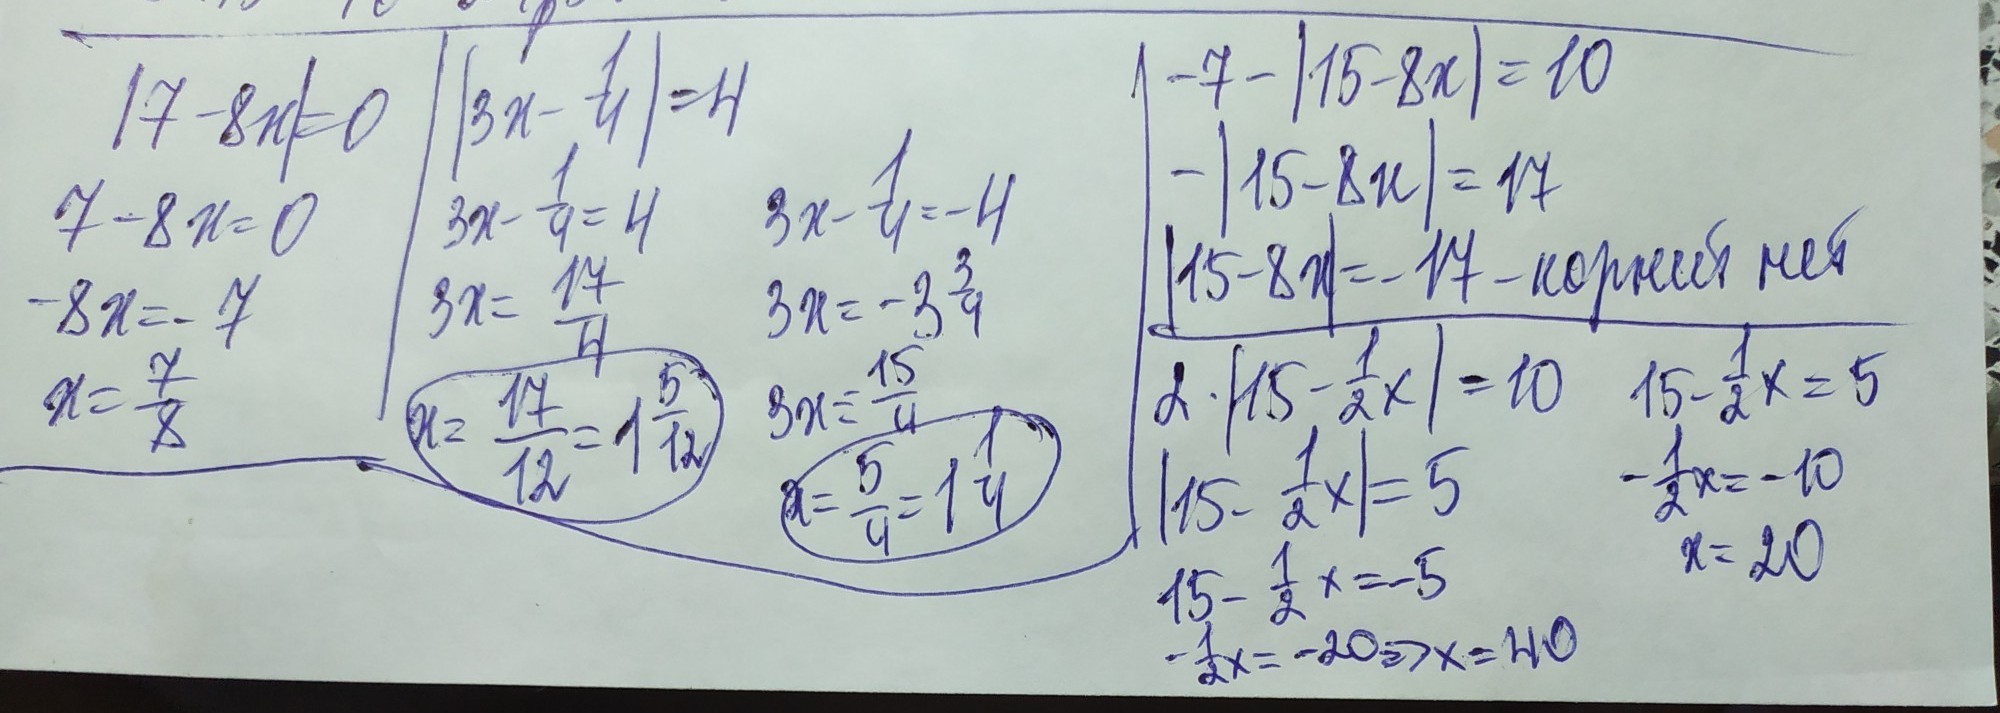 |7-8x|=0
7-8x=0
-8x=-7
x=7/8
|3x-1/4|=4
3x-1/4=4
3x=17/4
x=17/12=1 5/12
3x-1/4=-4
3x=-3 3/4
3x=15/4
x=5/4=1 1/4
-7-|15-8x|=10
-|15-8x|=17
|15-8x|=-17-корней нет
2·|15-1/2x|=10
|15-1/2x|=5
15-1/2x=-5
-1/2x=-20=>x=40
15-1/2x=5
-1/2x=-10
x=20